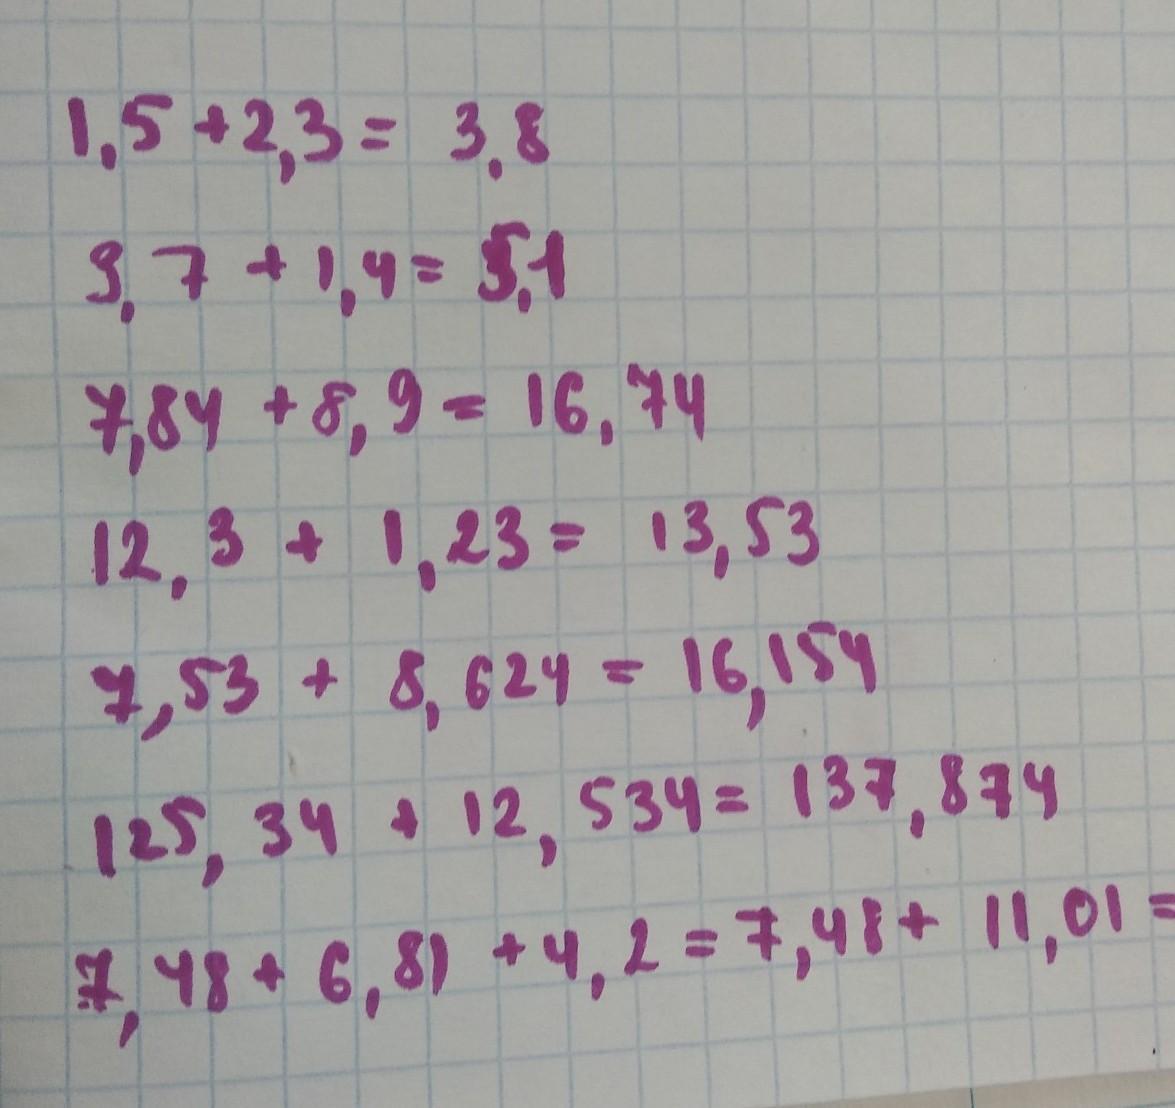 1,5 + 2,3 = 3,8
3,7 + 1,4 = 5,1
7,84 + 8,9 = 16,74
12,3 + 1,23 = 13,53
7,53 + 8,624 = 16,154
125,34 + 12,534 = 137,874
7,48 + 6,81 + 4,2 = 7,48 + 11,01 =